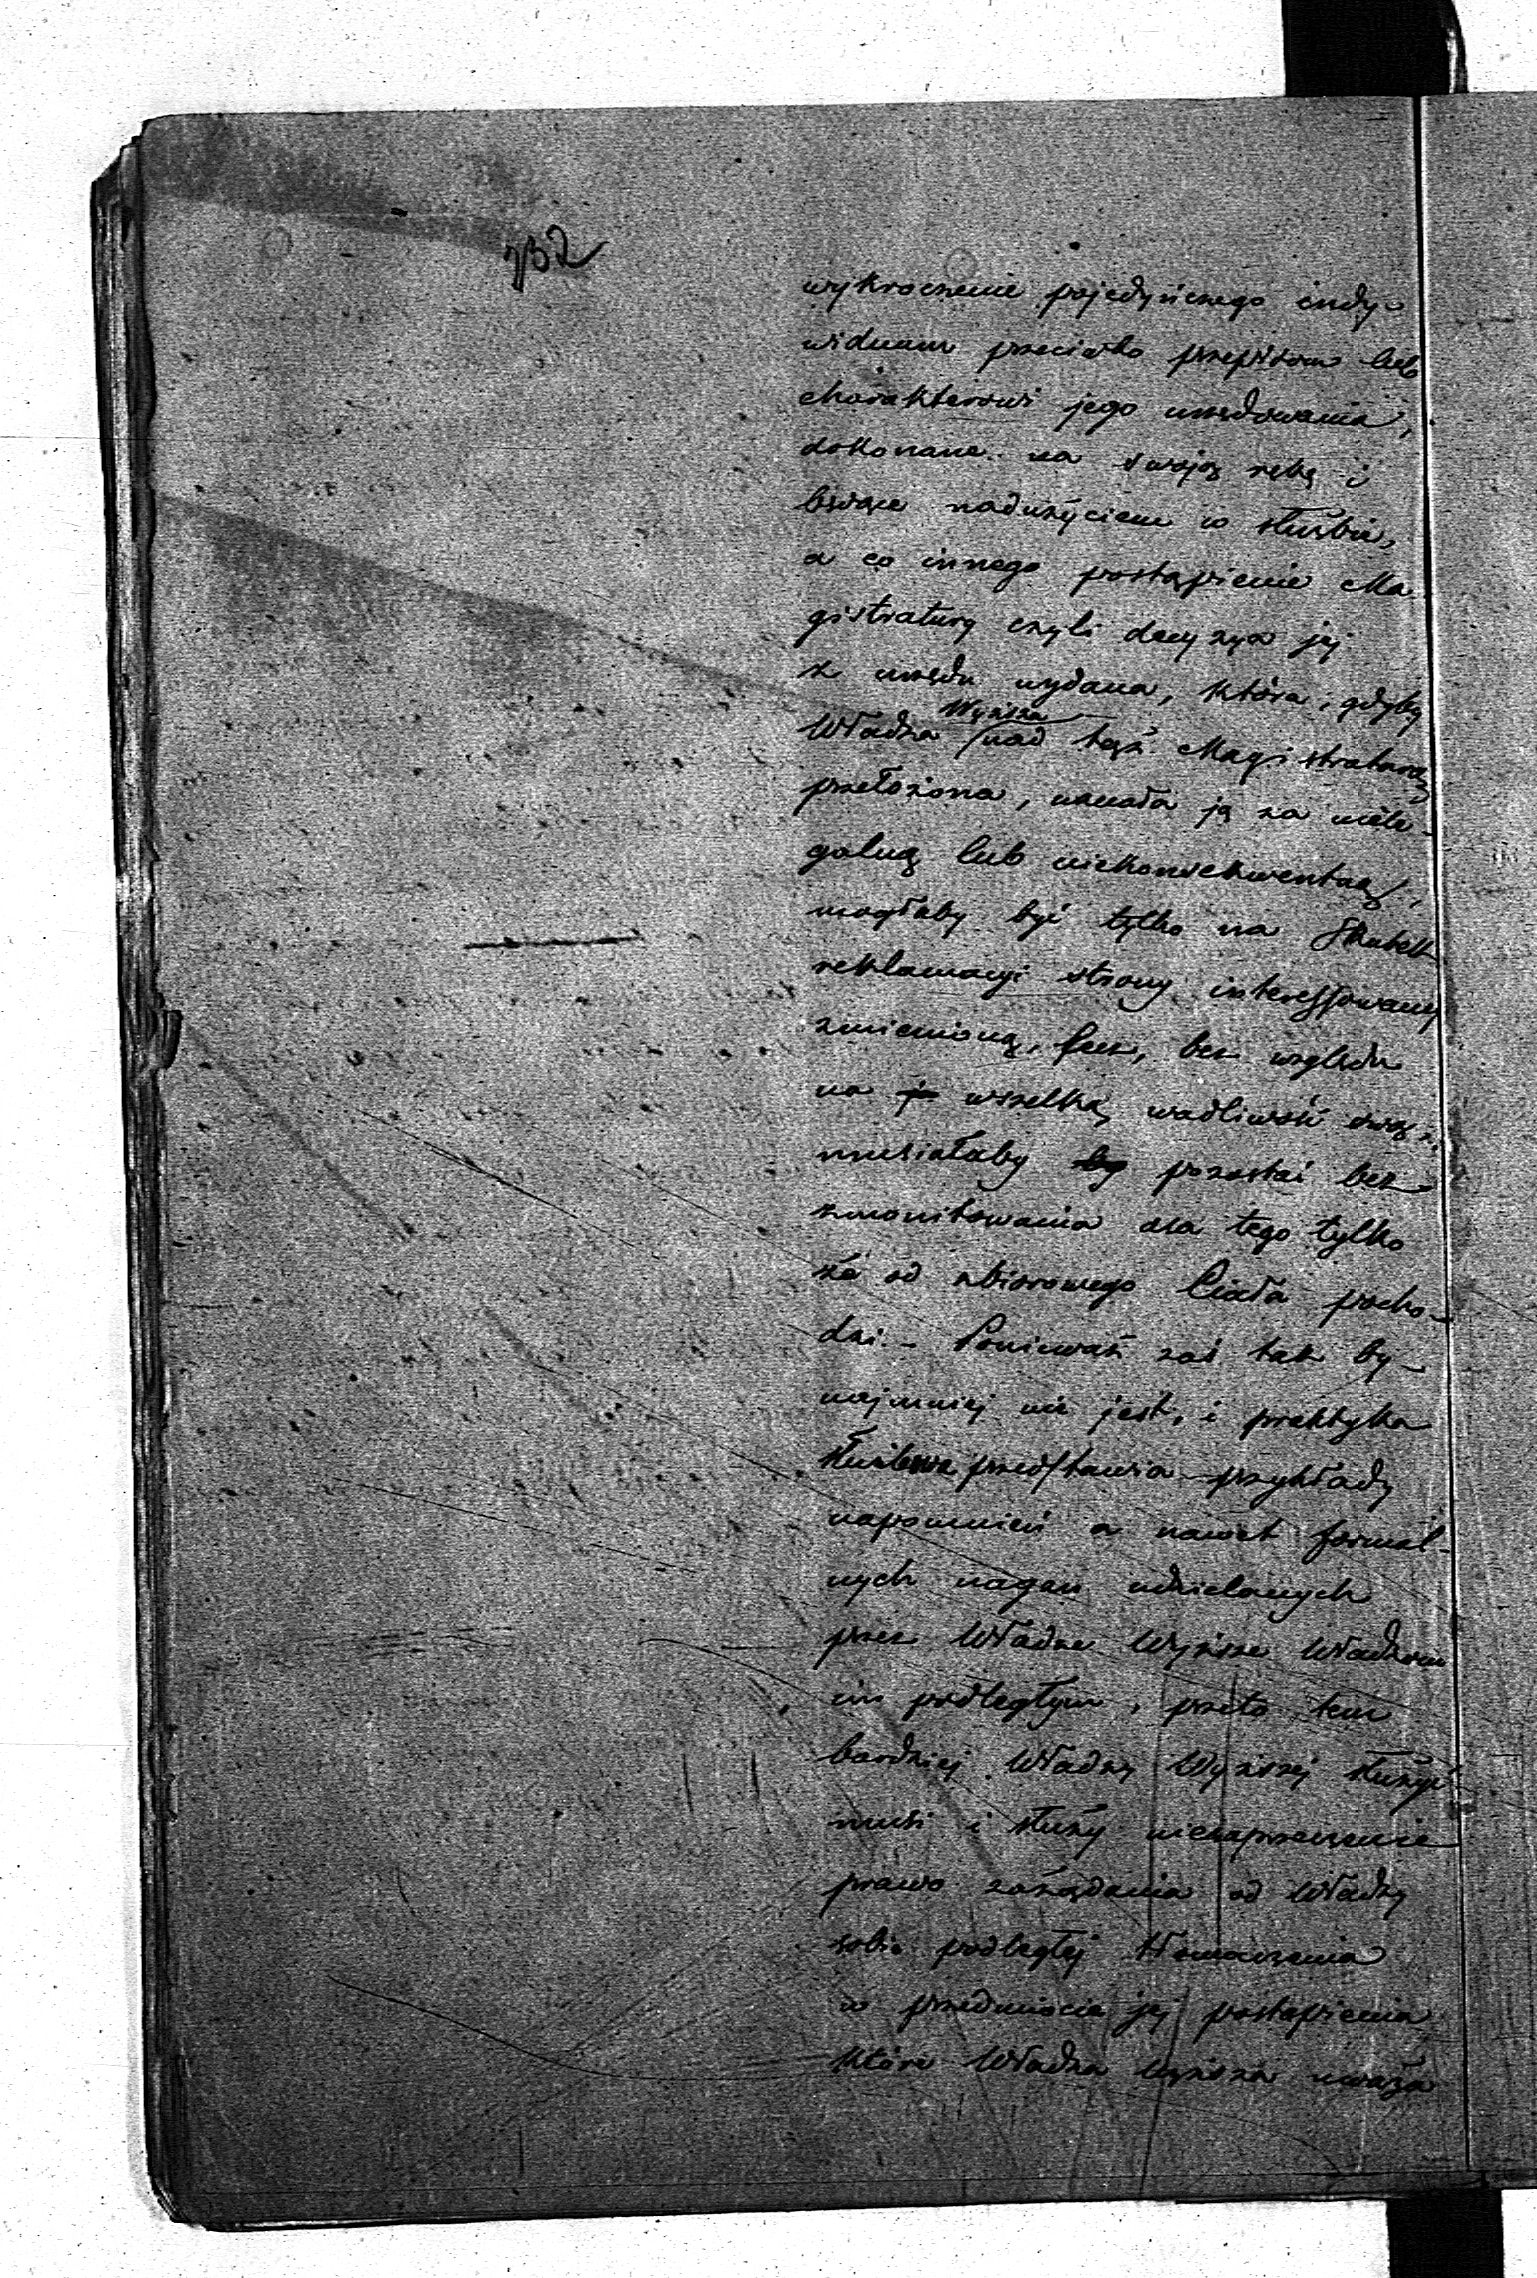 732
wykroczenie pojedyńczego indy-
widuum przeciwko przepisom lub
charakterowi jego urzędowania,
dokonane na swoją rękę i
będące nadużyciem w służbie,
a co innego postąpienie Ma-
gistratury czyli decyzya jej
z urzędu wydana, która, gdyby
Wyższa
Władza nad tęż Magistraturą
przełożona, uznała ją za niele-
galną lub niekonsekwentną,
mogłaby być tylko na skutek
reklamacyi strony interessowanej
zmienioną, lecz, bez względu
na wszelką wadliwość swą,
musiałaby pozostać bez
zmonitowania dla tego tylko
że od zbiorowego Ciała pocho-
dzi. – Ponieważ zaś tak by-
najmniej nie jest, i praktyka
służbowa przedstawia przykłady
napomnień a nawet formal-
nych nagan udzielanych
przez Władze Wyższe Władzom
im podległym, przeto tem
bardziej Władzy Wyższej służyć
musi i służy niezaprzeczenie
prawo zażądania od Władzy
sobie podległej tłomaczenia
w przedmiocie jej postąpienia
które Władza wyższa uważa